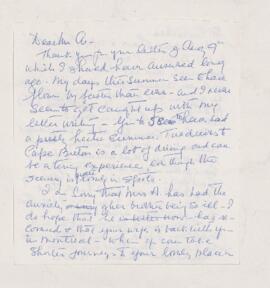 Dear Mr. A-
Thank you for your letter of Aug 9
which I should have answered long
ago. My days this Summer seem to have
flown by faster than ever - and I never
seem to get caught up with my
letter writing - You to have had
a pretty hectic Summer. Two drives to
Cape Breton is a lot of driving and can
be a tiring experience even though the
scenery is lovely in spots.
I am Sorry that Mrs A. has had the
anxiety of her brother being so ill - I
do hope that he is better now - has re-
covered & that your wife is back with you
in Montreal - when you can take
shorter journeys to your lovely place in